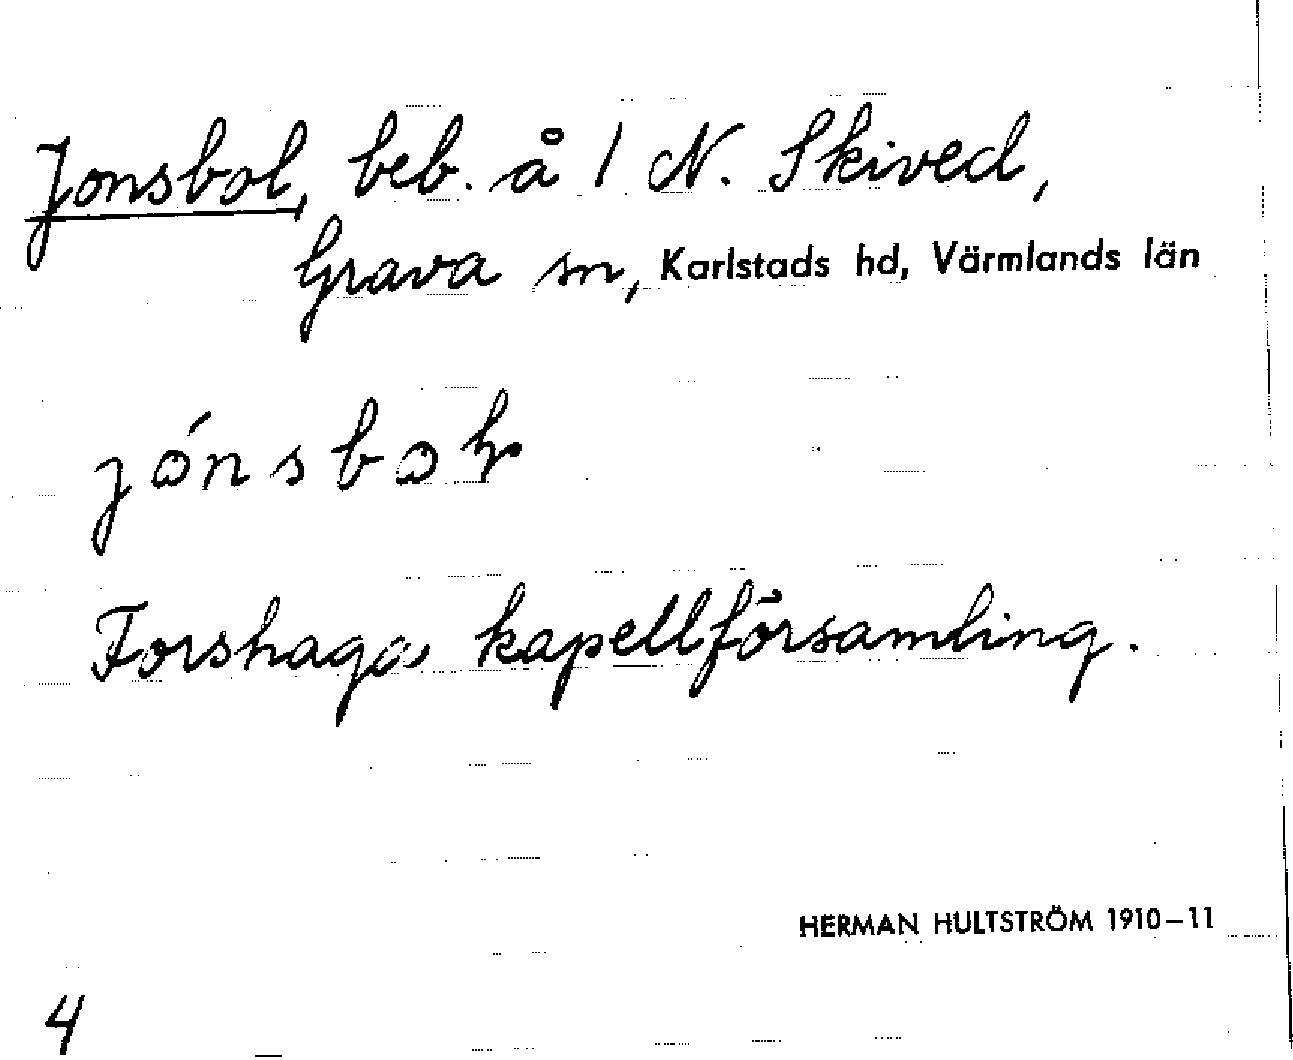 Jonsbol, beb. å 1 N. Skived,
Grava sn, Karlstads hd, Värmlands län
Forshaga kapellförsamling.
HERMAN HULTSTRÖM 1910–11
4